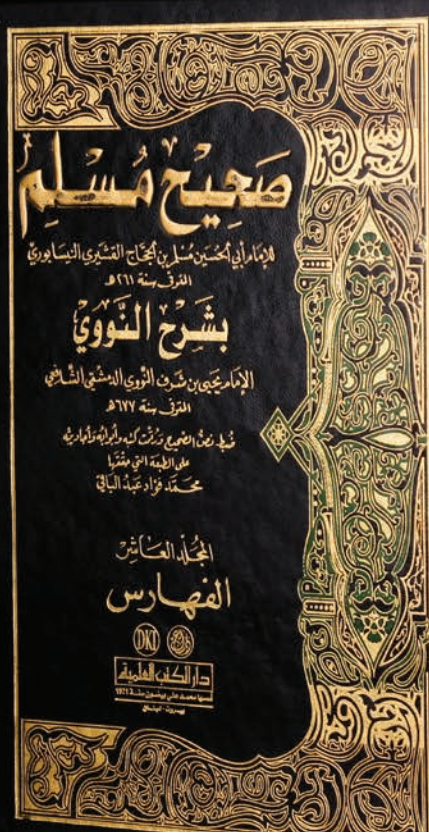 صَحِيح مُسْلِم
للإمام أبي الحُسَين مُسْلِم بن الحَجَّاج القشَيري النيسَابوريّ
المتوفى سنة ٢٦١هـ
بِشَرْح النَّوَوِيّ
الإمام يَحيى بن شَرَف النَّووي الدمشقي الشَّافعي
المتوفى سنة ٦٧٧هـ
ضُبط نصُّ الصحيح ورُقّمت كتبه وأبوابه وأحاديثه
على الطبعة التي حقّقها
محمَّد فؤاد عَبد الباقي
المجلّد العَاشر
الفهارس
DKI
دار الكتب العلمية
أسسها محمد علي بيضون سنة 1971
بيروت - لبنان